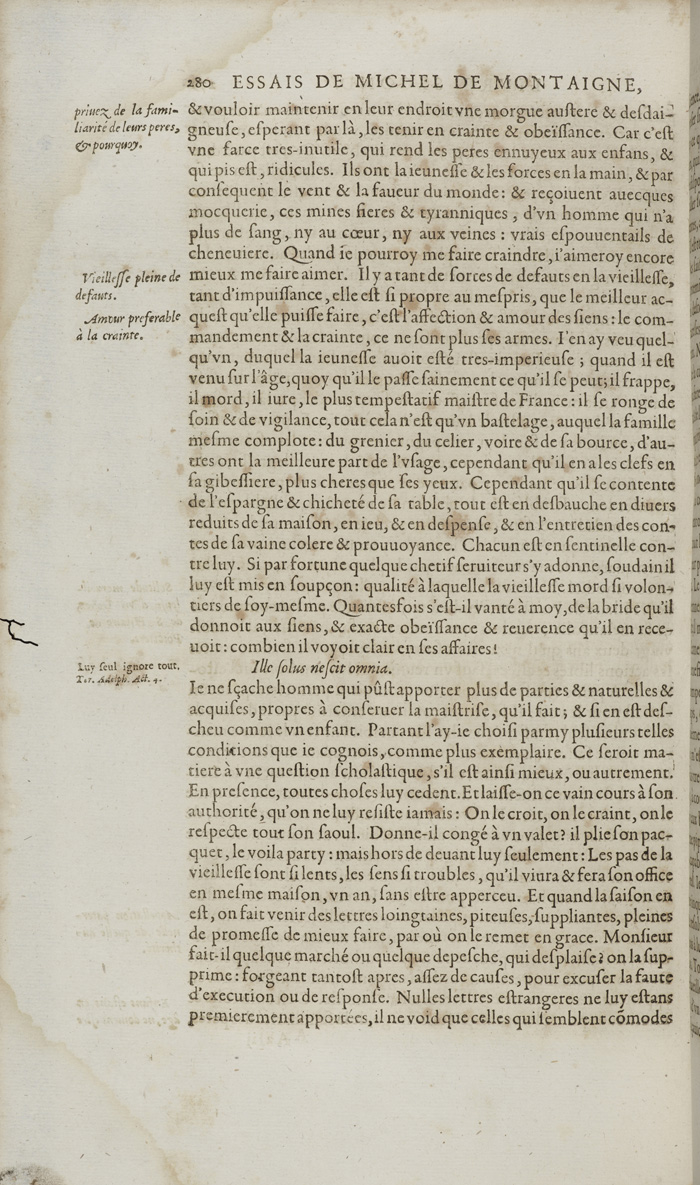 280 ESSAIS DE MICHEL DE MONTAIGNE,
priuez de la fami-
liarité de leurs peres,
& pourquoy.
& vouloir maintenir en leur endroit vne morgue austere & desdai-
gneuse, esperant par là, les tenir en crainte & obeïssance. Car c'est
vne farce tres-inutile, qui rend les peres ennuyeux aux enfans, &
qui pis est, ridicules. Ils ont la ieunesse & les forces en la main, & par
consequent le vent & la faueur du monde: & reçoiuent auecques
mocquerie, ces mines fieres & tyranniques, d'vn homme qui n'a
plus de sang, ny au cœur, ny aux veines: vrais espouuentails de
cheneuiere. Quand ie pourroy me faire craindre, i'aimeroy encore
Vieillesse pleine de
defauts.
Amour preferable
à la crainte.
mieux me faire aimer. Il y a tant de sortes de defauts en la vieillesse,
tant d'impuissance, elle est si propre au mespris, que le meilleur ac-
quest qu'elle puisse faire, c'est l'affection & amour des siens: le com-
mandement & la crainte, ce ne sont plus ses armes. I'en ay veu quel-
qu'vn, duquel la ieunesse auoit esté tres-imperieuse; quand il est
venu sur l'âge, quoy qu'il le passe sainement ce qu'il se peut; il frappe,
il mord, il iure, le plus tempestatif maistre de France: il se ronge de
soin & de vigilance, tout cela n'est qu'vn bastelage, auquel la famille
mesme complote: du grenier, du celier, voire & de sa bource, d'au-
tres ont la meilleure part de l'vsage, cependant qu'il en a les clefs en
sa gibessiere, plus cheres que ses yeux. Cependant qu'il se contente
de l'espargne & chicheté de sa table, tout est en desbauche en diuers
reduits de sa maison, en ieu, & en despense, & en l'entretien des con-
tes de sa vaine colere & prouuoyance. Chacun est en sentinelle con-
tre luy. Si par fortune quelque chetif seruiteur s'y adonne, soudain il
luy est mis en soupçon: qualité à laquelle la vieillesse mord si volon-
tiers de soy-mesme. Quantesfois s'est-il vanté à moy, de la bride qu'il
donnoit aux siens, & exacte obeïssance & reuerence qu'il en rece-
uoit: combien il voyoit clair en ses affaires!
Luy seul ignore tout.
Ter. Adelph. Act. 4.
Ille solus nescit omnia.
Ie ne sçache homme qui pûst apporter plus de parties & naturelles &
acquises, propres à conseruer la maistrise, qu'il fait; & si en est des-
cheu comme vn enfant. Partant l'ay-ie choisi parmy plusieurs telles
conditions que ie cognois, comme plus exemplaire. Ce seroit ma-
tiere à vne question scholastique, s'il est ainsi mieux, ou autrement.
En presence, toutes choses luy cedent. Et laisse-on ce vain cours à son
authorité, qu'on ne luy resiste iamais: On le croit, on le craint, on le
respecte tout son saoul. Donne-il congé à vn valet? il plie son pac-
quet, le voila party: mais hors de deuant luy seulement: Les pas de la
vieillesse sont si lents, les sens si troubles, qu'il viura & fera son office
en mesme maison, vn an, sans estre apperceu. Et quand la saison en
est, on fait venir des lettres loingtaines, piteuses, suppliantes, pleines
de promesse de mieux faire, par où on le remet en grace. Monsieur
fait-il quelque marché ou quelque depesche, qui desplaise? on la sup-
prime: forgeant tantost apres, assez de causes, pour excuser la faute
d'execution ou de responfe. Nulles lettres estrangeres ne luy estans
premierement apportées, il ne void que celles qui semblent cõmodes